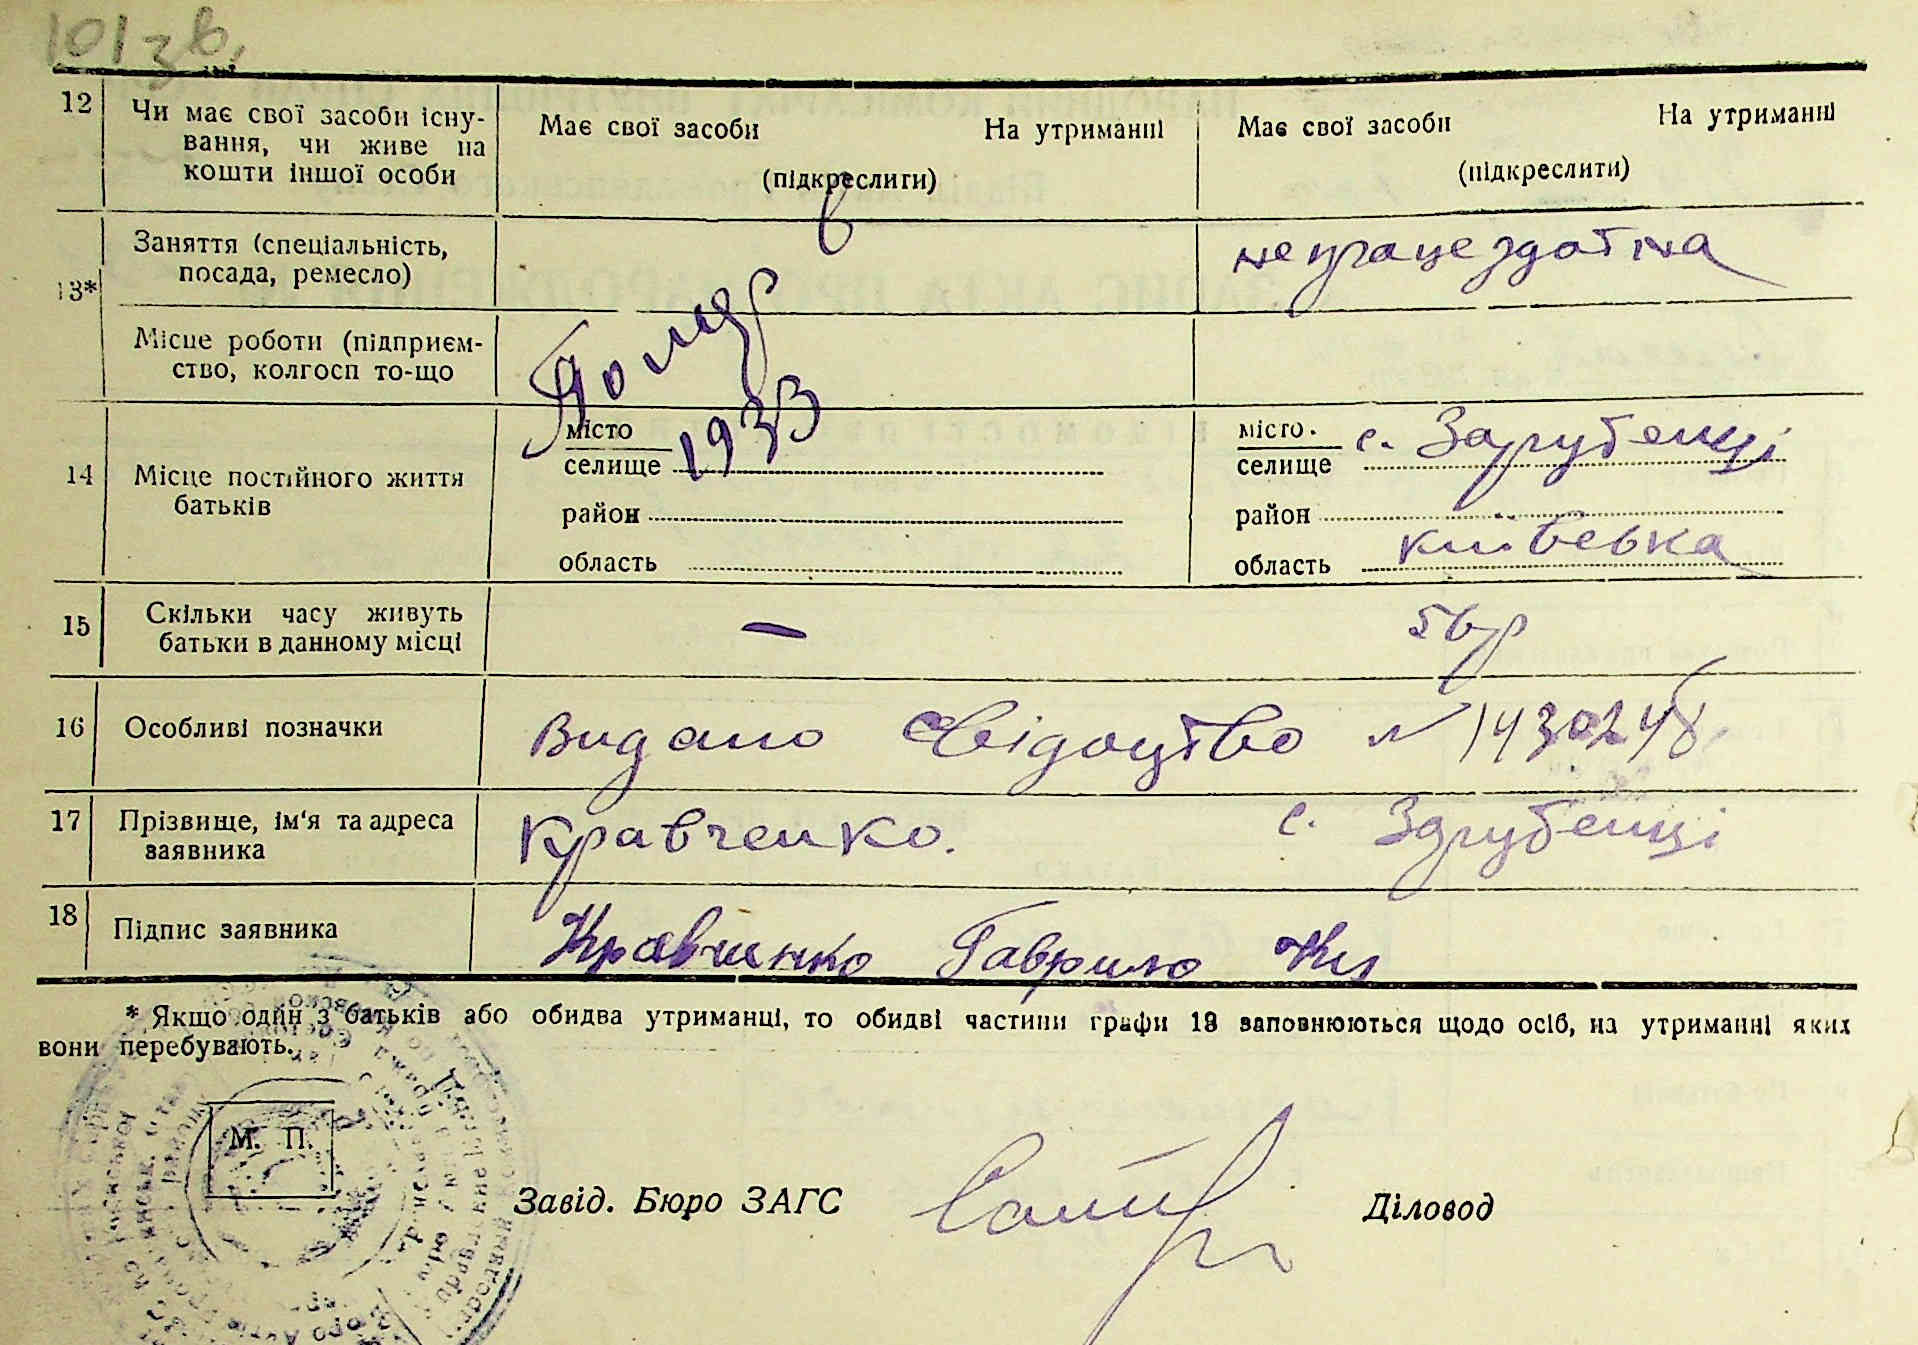 101 зв.
12
Чи має свої засоби існу-
вання, чи живе на
кошти іншої особи
Має свої засоби На утриманні
(підкреслити)
Має свої засоби На утриманні
(підкреслити)
13*
Заняття (спеціальність,
посада, ремесло)
непрацездотна
Місце роботи (підприєм-
ство, колгосп то-що
Помер
в
1933
14
Місце постійного життя
батьків
місто
селище
район
область
місто. с. Зарубенці
селище
район
область київська
15
Скільки часу живуть
батьки в данному місці
—
16
Особливі позначки
Видано свідоцтво N 1430246
17
Прізвище, ім'я та адреса
заявника
Кравченко. с. Зарубенці
18
Підпис заявника
Кравченко Гаврило
* Якщо один з батьків або обидва утриманці, то обидві частини графи 13 заповнюються щодо осіб, на утриманні яких
вони перебувають.
М. П.
Завід. Бюро ЗАГС
Діловод